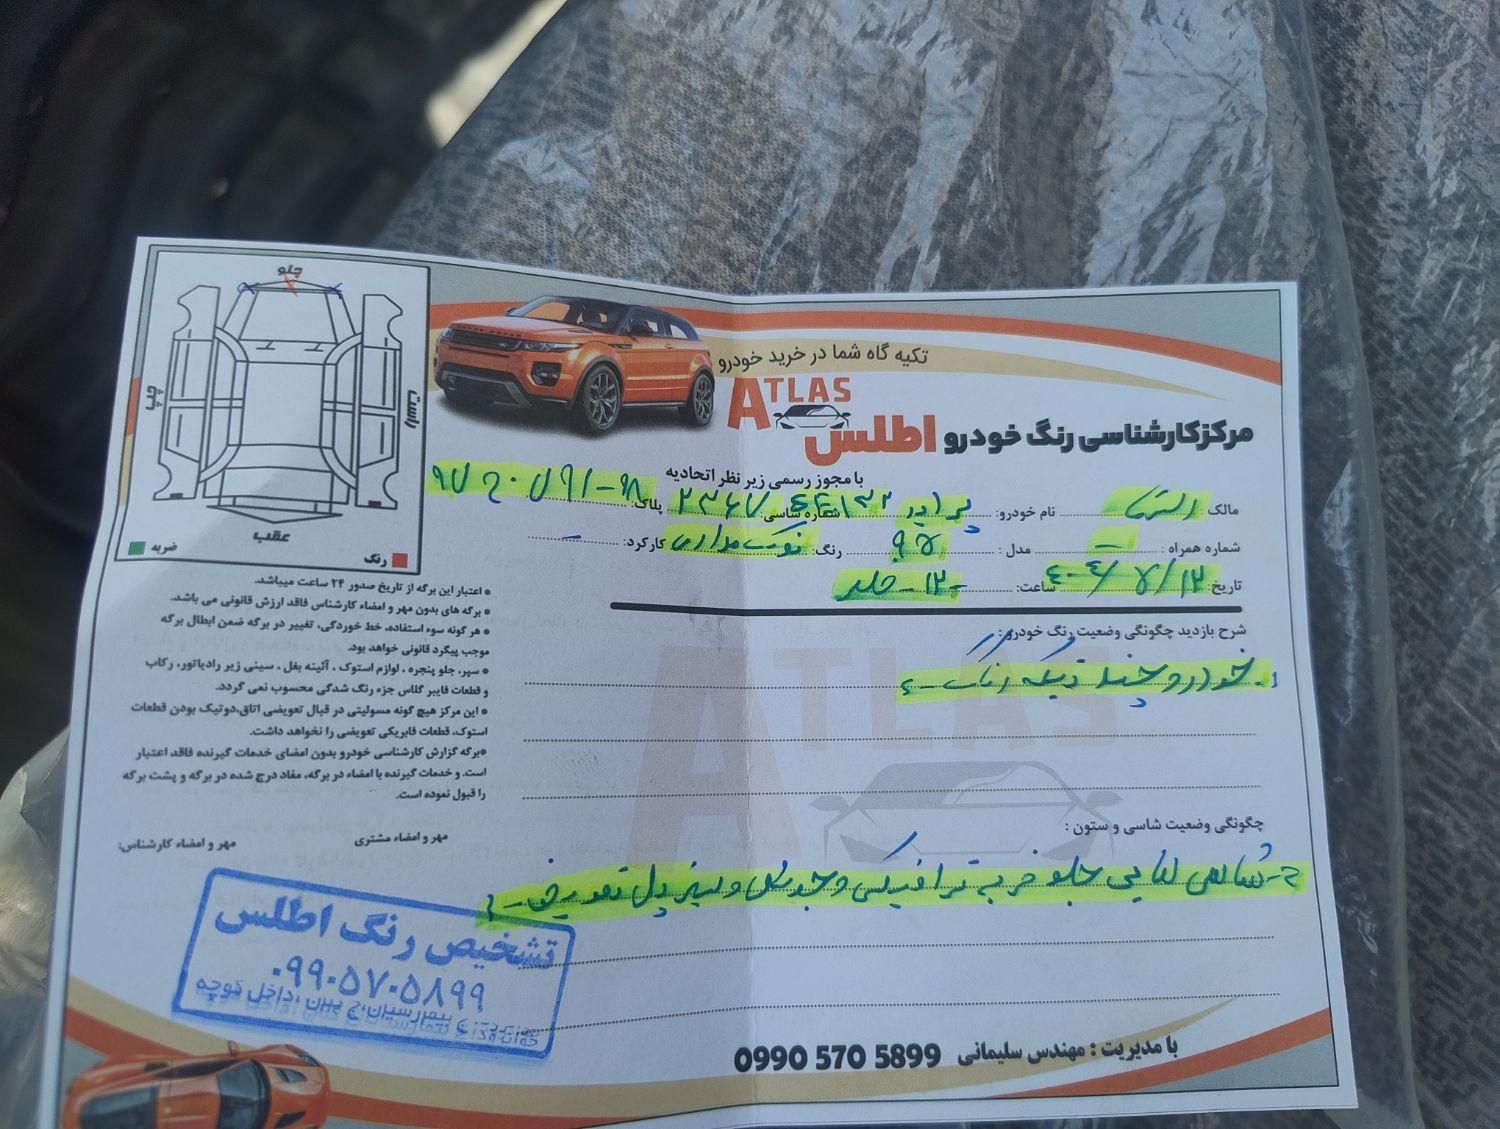 تکیه گاه شما در خرید خودرو
ATLAS
مرکز کارشناسی رنگ خودرو اطلس
با مجوز رسمی زیر نظر اتحادیه
مالک: نام خودرو: پراید ۱۳۲ شماره شاسی: پلاک:
شماره همراه: - مدل: رنگ: نوک مدادی کارکرد: -
تاریخ: ۴۰۴/۷/۱۲ ساعت:
شرح بازدید چگونگی وضعیت رنگ خودرو:
خودرو چند تیکه رنگ
چگونگی وضعیت شاسی و ستون:
جلو ضربه ترافیکی و تعویض
با مدیریت: مهندس سلیمانی 0990 570 5899
جلو
چپ
راست
عقب
رنگ
ضربه
● اعتبار این برگه از تاریخ صدور ۲۴ ساعت میباشد.
● برگه های بدون مهر و امضاء کارشناس فاقد ارزش قانونی می باشد.
● هر گونه سوء استفاده، خط خوردگی، تغییر در برگه ضمن ابطال برگه
موجب پیگرد قانونی خواهد بود.
● سپر، جلو پنجره، لوازم استوک، آئینه بغل، سینی زیر رادیاتور، رکاب
و قطعات فایبر گلاس جزء رنگ شدگی محسوب نمی گردد.
● این مرکز هیچ گونه مسولیتی در قبال تعویضی اتاق،دوتیک بودن قطعات
استوک، قطعات فابریکی تعویضی را نخواهد داشت.
●برگه گزارش کارشناسی خودرو بدون امضای خدمات گیرنده فاقد اعتبار
است. و خدمات گیرنده با امضاء در برگه، مفاد درج شده در برگه و پشت برگه
را قبول نموده است.
مهر و امضاء مشتری
مهر و امضاء کارشناس:
تشخیص رنگ اطلس
۰۹۹۰۵۷۰۵۸۹۹